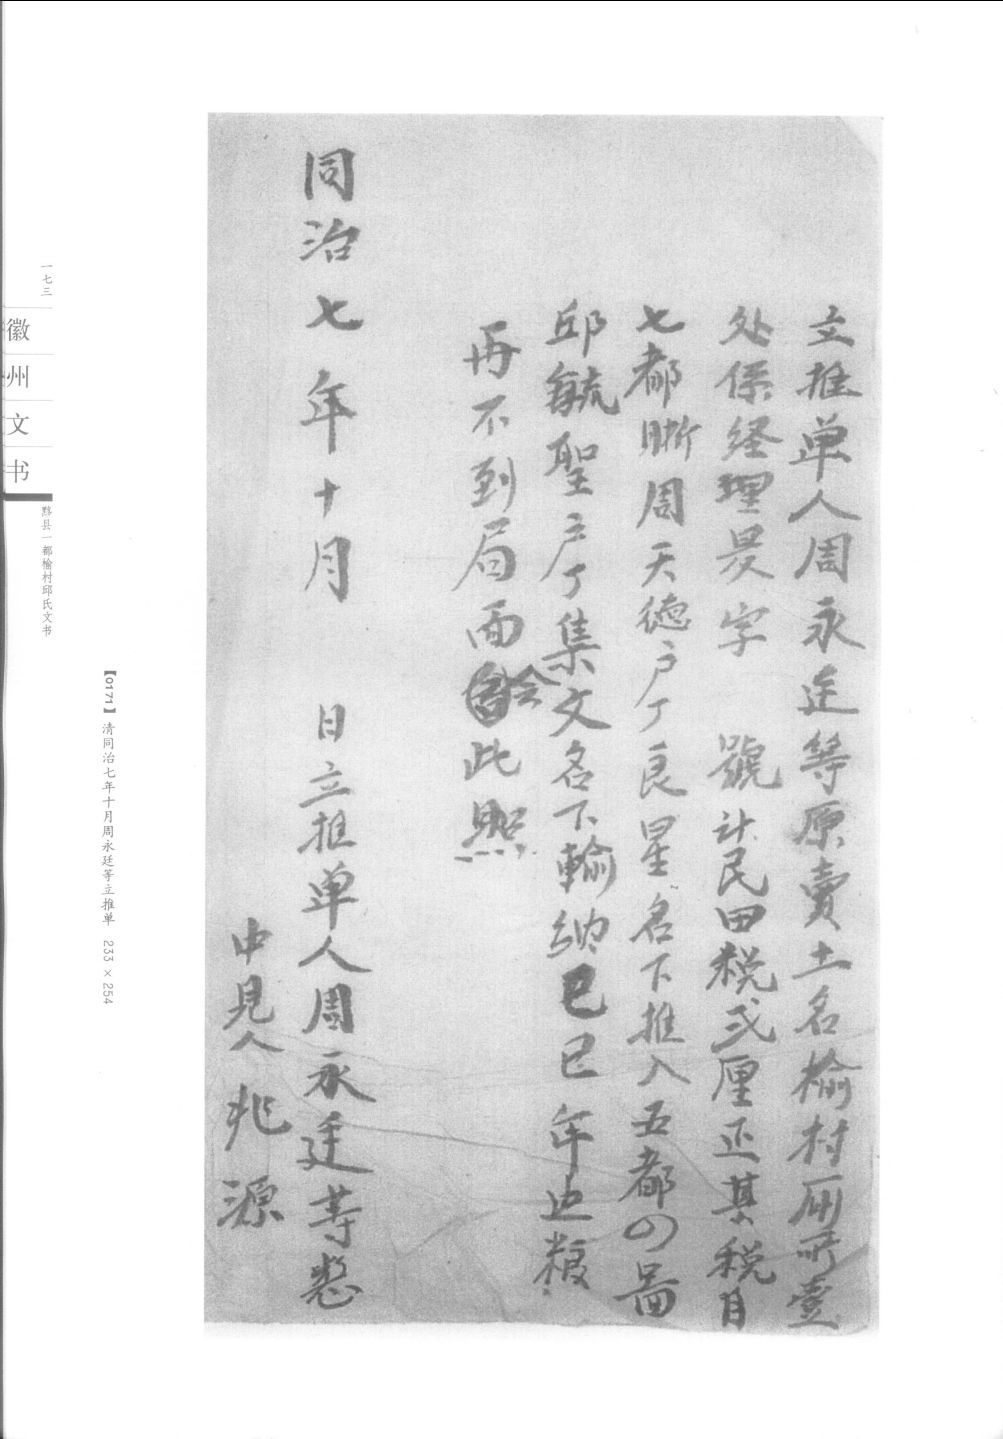 立推单人周永廷等原賣土名榆村厠所壹
处係经理是字　號計民田税弍厘正其税自
七都 周天德户丁良星名下推入五都四啚
邱毓聖户丁集文名下輸納己巳年迯粮
再不到局面会此照
同治七年十月　日立推单人周永廷等
中見人兆源
一七三
徽州文书
黟县一都榆村邱氏文书
【0171】清同治七年十月周永廷等立推单 233×254